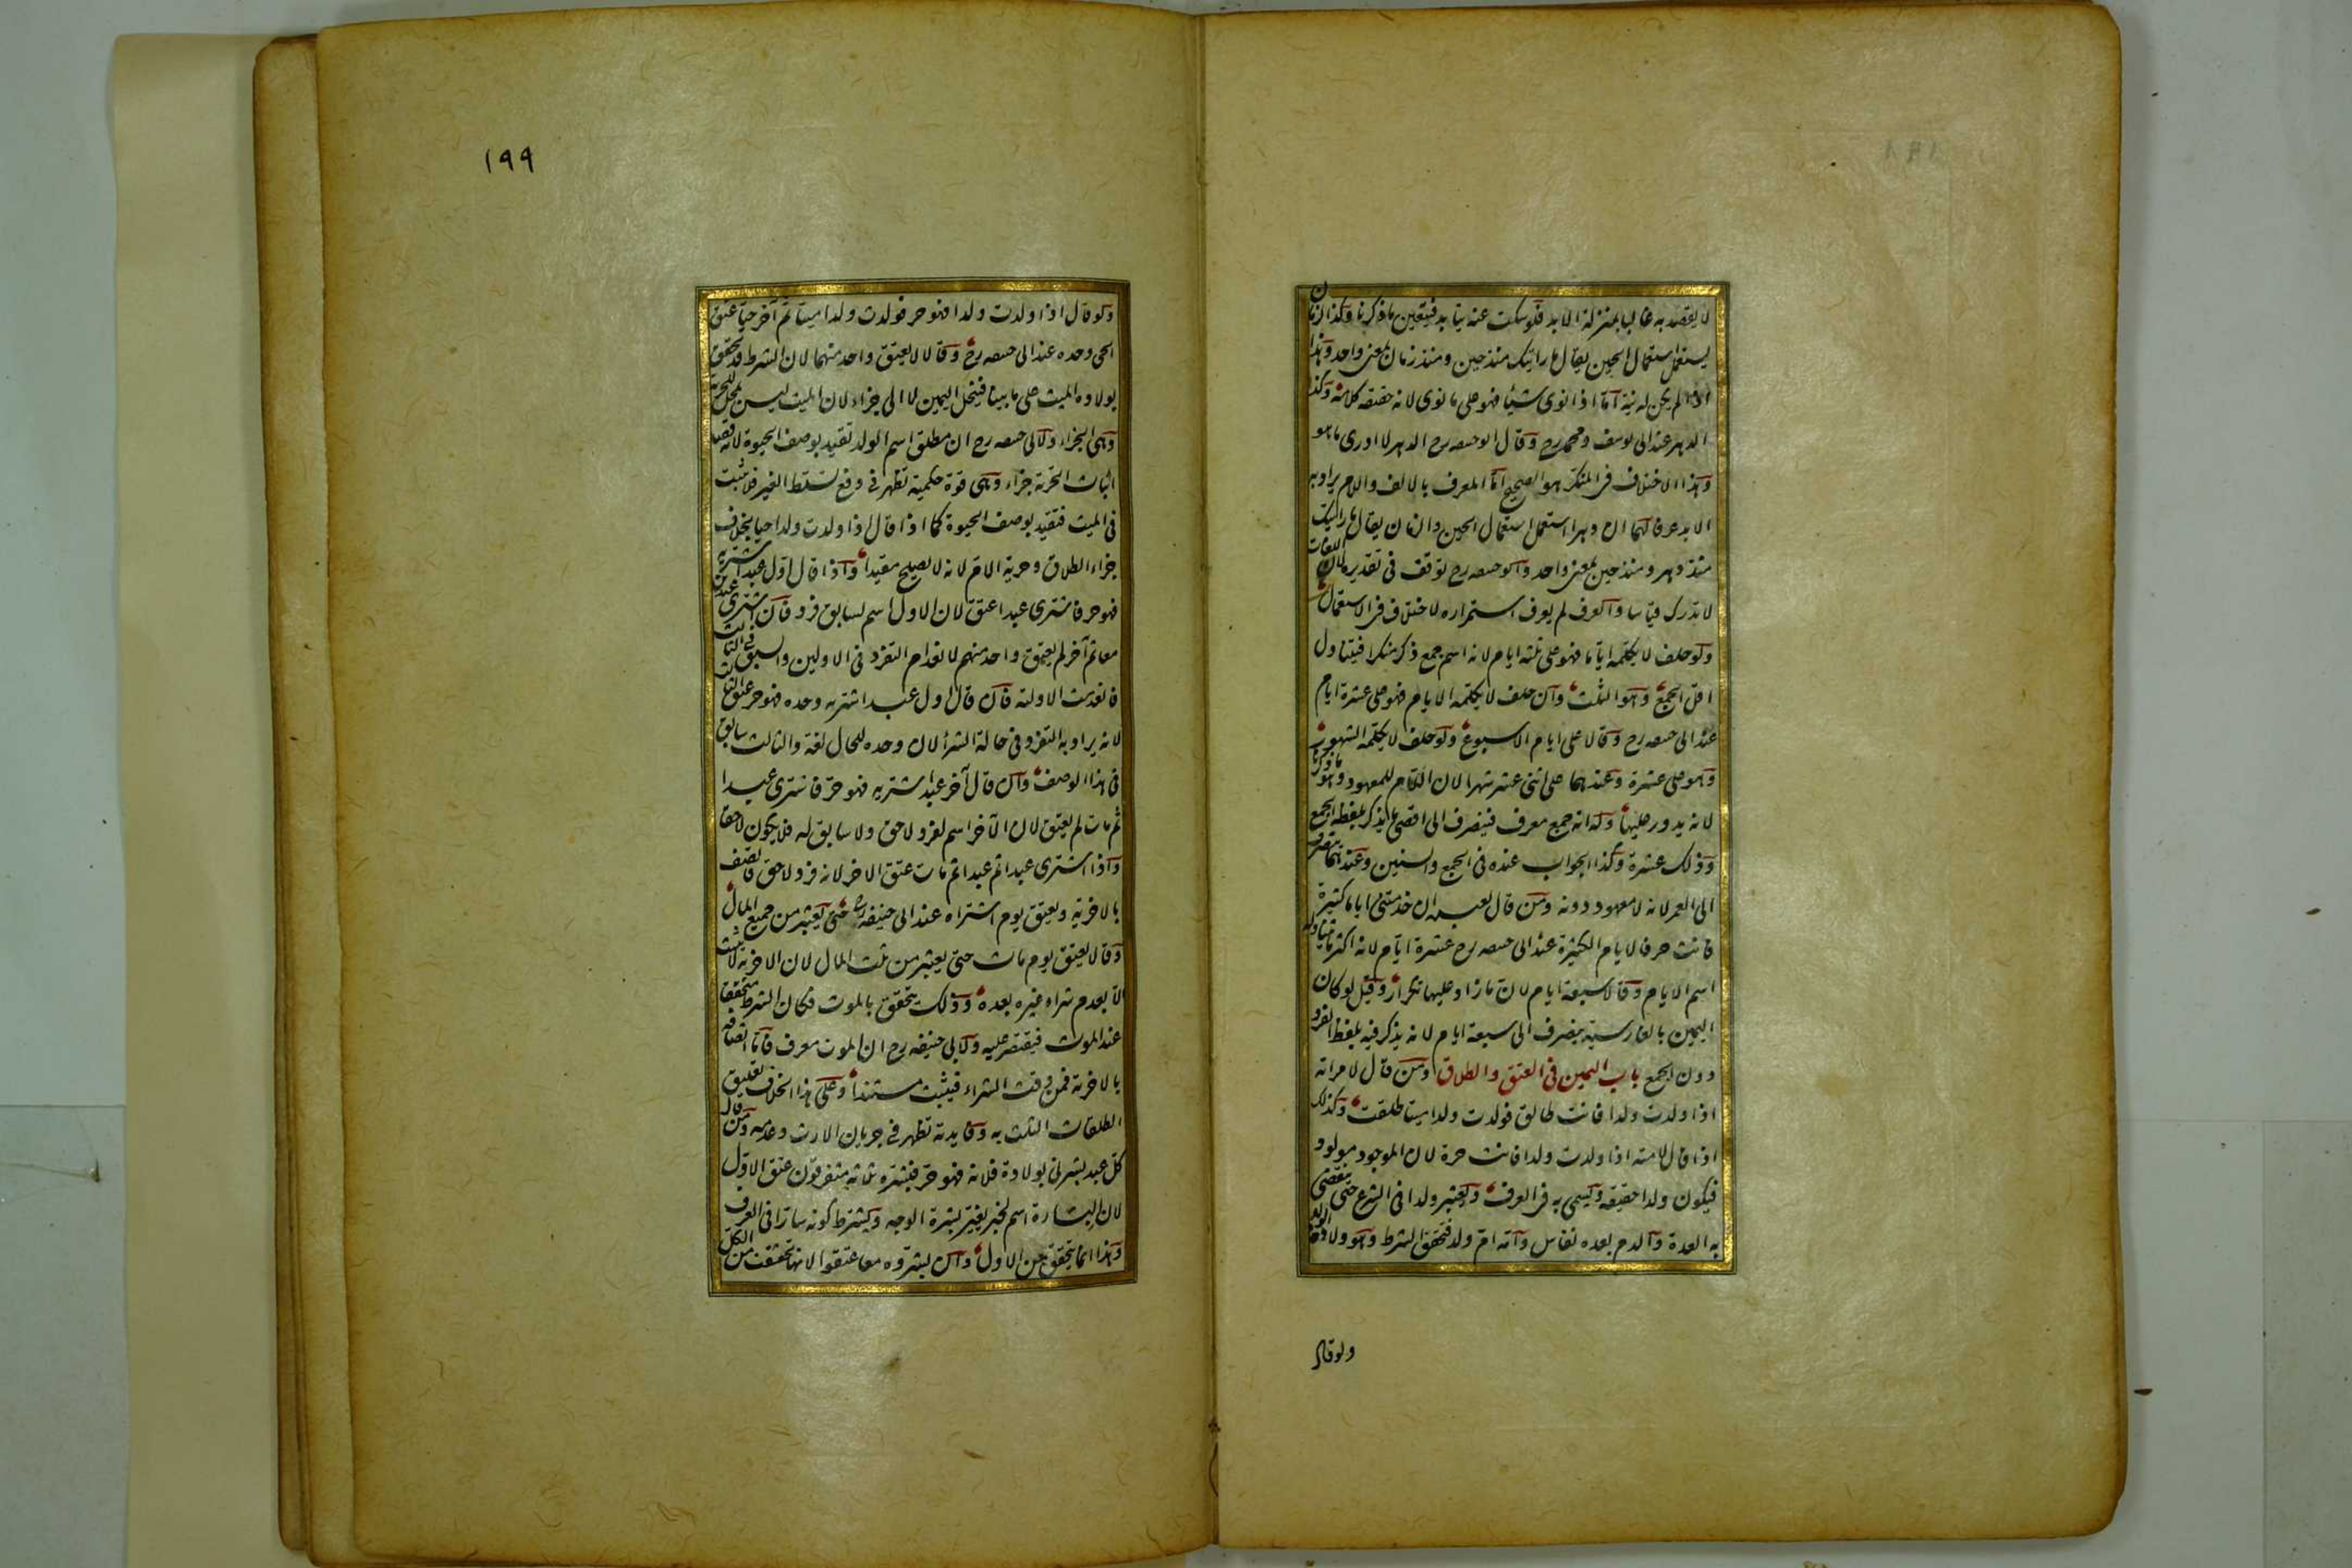 لا يقصد به غالبا بمنزلة الابد فلو سكت عنه يتابد فيتعين ما ذكرنا وكذا الزمان
يستعمل استعمال الحين يقال ما رايتك منذ حين ومنذ زمان بمعنى واحد وهذا
اذا لم يكن له نية اما اذا نوى شيئا فهو على ما نوى لانه حقيقة كلامه وكذا
الدهر عند ابى يوسف ومحمد رح وقال ابو حنيفه رح الدهر لا ادرى ما هو
وهذا الاختلاف فى المنكر هو الصحيح اما المعرف بالالف واللام يراد به
الابد عرفا لهما ان دهرا استعمل استعمال الحين والزمان يقال ما رايتك
منذ دهر ومنذ حين بمعنى واحد وابو حنيفه رح توقف فى تقديره لان اللغات
لا تدرك قياسا والعرف لم يعرف استمراره لاختلاف فى الاستعمال
ولو حلف لا يكلمه اياما فهو على ثلثة ايام لانه اسم جمع ذكر منكرا فيتناول
اقل الجمع وهو الثلث وان حلف لا يكلمه الايام فهو على عشرة ايام
عند ابى حنيفه رح وقالا على ايام الاسبوع ولو حلف لا يكلمه الشهور
فهو على عشرة وعندهما على اثنى عشر شهرا لان اللام للمعهود وهو ما ذكرنا
لانه يدور عليها وله انه جمع معرف فينصرف الى اقصى ما يذكر بلفظ الجمع
وذلك عشرة وكذا الجواب عنده فى الجمع والسنين وعندهما ينصرف
الى العمر لانه لا معهود دونه ومن قال لعبده ان خدمتنى اياما كثيرة
فانت حر فالايام الكثيرة عند ابى حنيفه رح عشرة ايام لانه اكثر ما يتناوله
اسم الايام وقالا سبعة ايام لان ما زاد عليها تكرار وقيل لو كان
اليمين بالفارسية ينصرف الى سبعة ايام لانه يذكر فيه بلفظ الفرد
دون الجمع باب اليمين فى العتق والطلاق ومن قال لامراته
اذا ولدت ولدا فانت طالق فولدت ولدا ميتا طلقت وكذلك
اذا قال لامته اذا ولدت ولدا فانت حرة لان الموجود مولود
فيكون ولدا حقيقه ويسمى به فى العرف ويعتبر ولدا فى الشرع حتى تنقضى
به العدة والدم بعده نفاس وامه ام ولد فتحقق الشرط وهو ولادة الولد
ولو قال
١٩٩
ولو قال اذا ولدت ولدا فهو حر فولدت ولدا ميتا ثم آخر حيا عتق
الحى وحده عند ابى حنيفه رح وقالا لا يعتق واحد منهما لان الشرط قد تحقق
بولادة الميت على ما بينا فينحل اليمين لا الى جزاء لان الميت ليس بمحل للحرية
وهى الجزاء ولابى حنيفه رح ان مطلق اسم الولد تقيد بوصف الحيوة لانه قصد
اثبات الحرية جزاء وهى قوة حكمية تظهر فى دفع تسلط الغير فلا تثبت
فى الميت فتقيد بوصف الحيوة كما اذا قال اذا ولدت ولدا حيا بخلاف
جزاء الطلاق وحرية الام لانه لا يصلح مقيدا واذا قال اول عبد اشتريه
فهو حر فاشترى عبدا عتق لان الاول اسم لسابق فرد فان اشترى عبدين
معا ثم آخر لم يعتق واحد منهم لانعدام التفرد فى الاولين والسبق فى الثالث
فانعدمت الاولية فان قال اول عبد اشتريه وحده فهو حر عتق الثالث
لانه يراد به التفرد فى حالة الشراء لان وحده للحال لغة والثالث سابق
فى هذا الوصف وان قال آخر عبد اشتريه فهو حر فاشترى عبدا
ثم مات لم يعتق لان الآخر اسم لفرد لاحق ولا سابق له فلا يكون لاحقا
واذا اشترى عبدا ثم عبدا ثم مات عتق الاخر لانه فرد لاحق فاتصف
بالاخرية ويعتق يوم اشتراه عند ابى حنيفه رح حتى يعتبر من جميع المال
وقالا يعتق يوم مات حتى يعتبر من ثلث المال لان الاخرية لا تثبت
الا بعدم شراء غيره بعده وذلك يتحقق بالموت فكان الشرط متحققا
عند الموت فيقتصر عليه ولابى حنيفه رح ان الموت معرف فاما اتصافه
بالاخرية فمن وقت الشراء فيثبت مستندا وعلى هذا الخلاف تعليق
الطلقات الثلث به وفايدته تظهر فى جريان الارث وعدمه ومن قال
كل عبد بشرنى بولادة فلانة فهو حر فبشره ثلثة متفرقون عتق الاول
لان البشارة اسم لخبر يغير بشرة الوجه ويشترط كونه سارا فى العرف
وهذا انما يتحقق من الاول وان بشروه معا عتقوا لانها تحققت من الكل